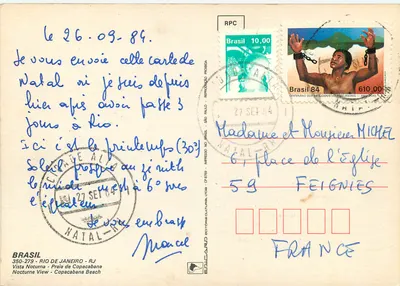 le 26.09.84.
Je vous envoie cette carte de
Natal où je suis depuis
hier après avoir passé 3
jours à Rio.
Ici c'est le printemps (30°)
Soleil presque au zénith
le midi
l'équateur
Je vous embrasse
Marcel
BRASIL
350-279 - RIO DE JANEIRO - RJ
Vista Noturna - Praia de Copacabana
Nocturne View - Copacabana Beach
RPC
Brasil 10,00
Brasil 84 610,00
27 SET 84
NATAL-RN
CIDADE ALTA
27 SET 84
NATAL-RN
Madame et Monsieur MICHEL
6, place de l'Église
59 FEIGNIES
FRANCE